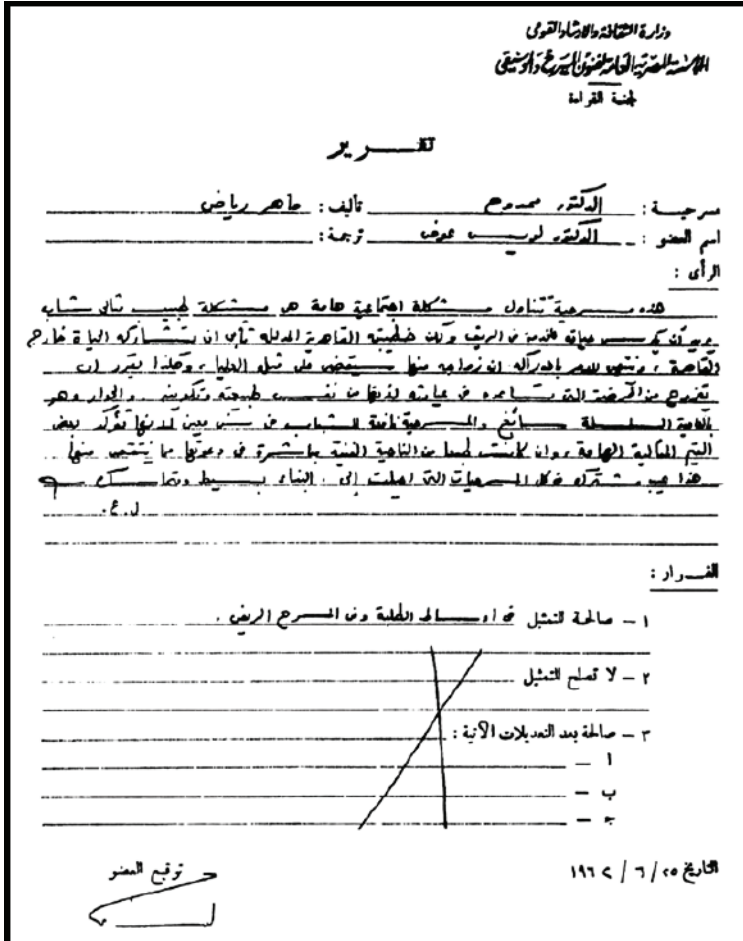 وزارة الثقافة والارشاد القومى
المؤسسة المصرية العامة لفنون المسرح والموسيقى
لجنة القراءة
تقـــرير
مسرحية : الدكتور ممدوح تأليف : ماهر رياض
اسم العضو : الدكتور لويس عوض ترجمة :
الرأى :
هذه مسرحية تتناول مشكلة اجتماعية هامة هى مشكلة طبيب شاب
يريد أن يكرس حياته للخدمة فى الريف ولكن خطيبته القاهرية المدللة تأبى ان تشاركه الحياة خارج
القاهرة ، وينتهى الأمر بادراكه ان زواجه منها سيقضى على مثله العليا ، وهكذا يقرر ان
يتزوج من الممرضة التى تساعده فى عيادته لأنها من نفس طبيعته وتكوينه . والحوار وهو
بالعامية السلسلة سائغ والمسرحية نافعة للشباب فى سن معين لأنها تؤكد بعض
القيم المثالية الهامة ، وان كانت طبعا من الناحية الفنية مباشرة فى دعوتها مما ينتقص منها
هذا عيب مشترك فى كل المسرحيات التى احيلت إلى . البناء بسيط
ل . ع .
القــرار :
١ – صالحة للتمثيل فى أوساط الطلبة وفى المسرح الريفى .
٢ – لا تصلح للتمثيل
٣ – صالحة بعد التعديلات الآتية :
ا –
ب –
ج –
التاريخ ٢٥ / ٦ / ١٩٦٢
توقيع العضو